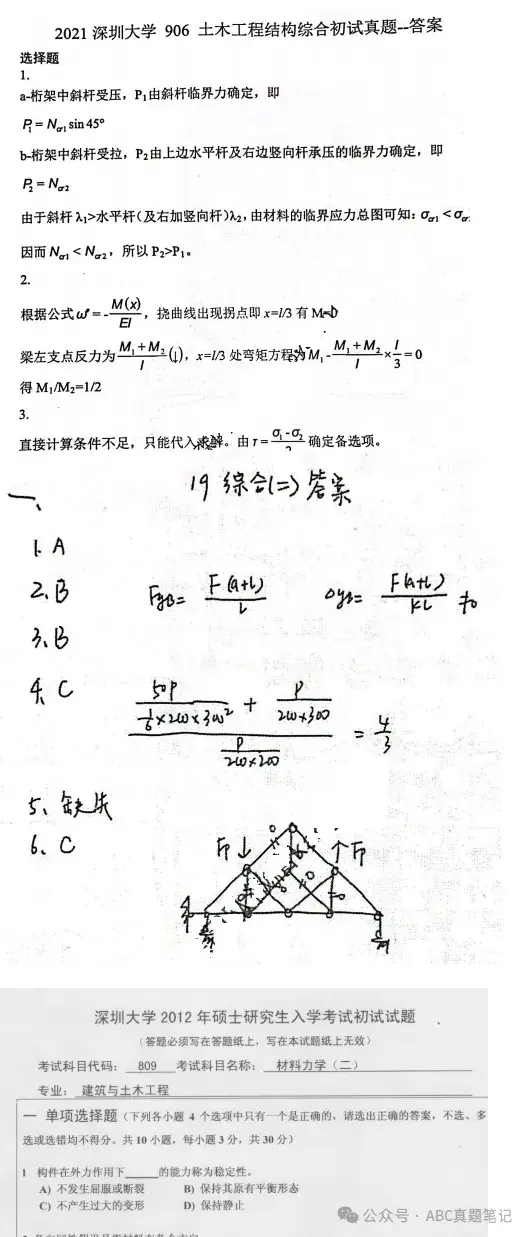 2021 深圳大学 906 土木工程结构综合初试真题--答案
选择题
1.
a-桁架中斜杆受压，P₁由斜杆临界力确定，即
P₁ = Ncr1 sin 45°
b-桁架中斜杆受拉，P₂由上边水平杆及右边竖向杆承压的临界力确定，即
P₂ = Ncr2
由于斜杆 λ₁>水平杆(及右加竖向杆)λ₂，由材料的临界应力总图可知：σcr1 < σcr
因而 Ncr1 < Ncr2，所以 P₂>P₁。
2.
根据公式 ω" = -M(x)/EI，挠曲线出现拐点即 x=l/3 有 M=0
梁左支点反力为 (M₁+M₂)/l (↓)，x=l/3 处弯矩方程为 M₁ - (M₁+M₂)/l × l/3 = 0
得 M₁/M₂=1/2
3.
直接计算条件不足，只能代入求解。由 τ = (σ₁-σ₂)/2 确定备选项。
19 综合(二) 答案
一、
1. A
2. B FyB = F(a+L)/L ΔyB = F(a+L)/KL ≠0
3. B
4. C (50P/(1/6×200×300²) + P/(200×300)) / (P/(200×200)) = 4/3
5、缺失
6、C
Fp↓ ↑Fp
深圳大学 2012 年硕士研究生入学考试初试试题
（答题必须写在答题纸上，写在本试题纸上无效）
考试科目代码： 809 考试科目名称： 材料力学（二）
专业： 建筑与土木工程
一 单项选择题（下列各小题 4 个选项中只有一个是正确的，请选出正确的答案，不选、多
选或选错均不得分。共 10 小题，每小题 3 分，共 30 分）
1 构件在外力作用下____的能力称为稳定性。
A) 不发生屈服或断裂 B) 保持其原有平衡形态
C) 不产生过大的变形 D) 保持静止
公众号 · ABC真题笔记